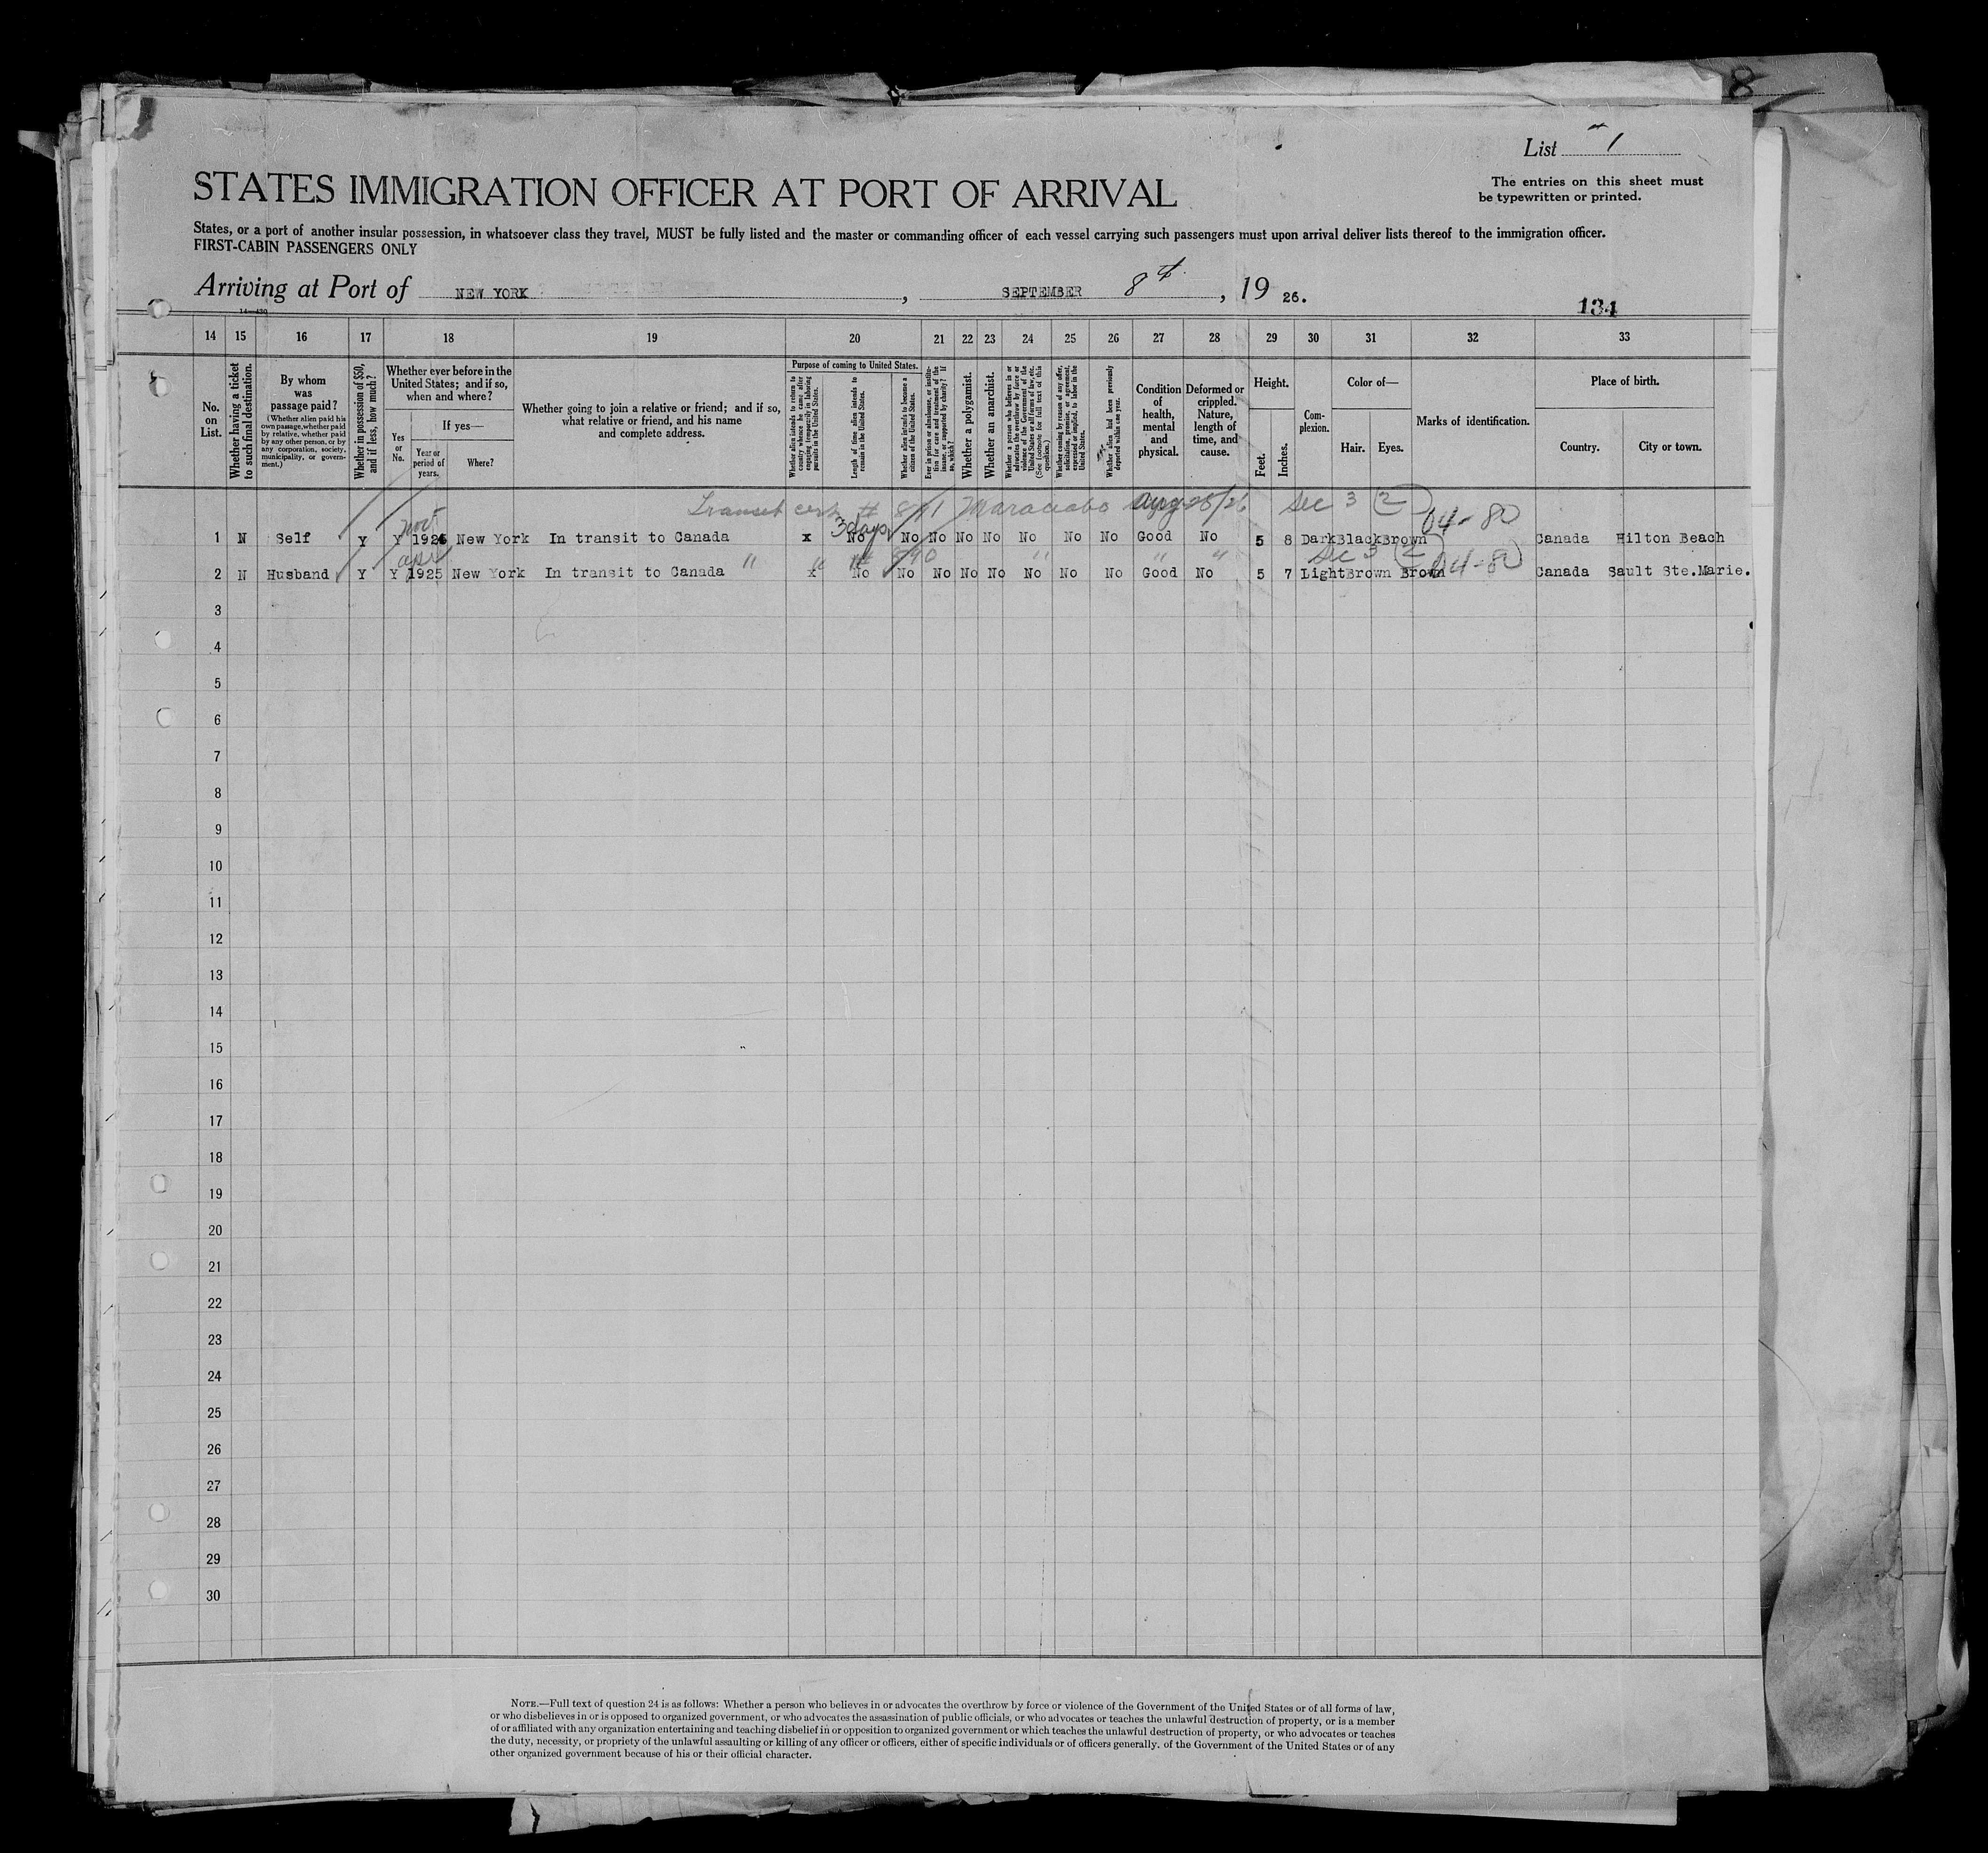 8
List 1
STATES IMMIGRATION OFFICER AT PORT OF ARRIVAL
The entries on this sheet must
be typewritten or printed.
States, or a port of another insular possession, in whatsoever class they travel, MUST be fully listed and the master or commanding officer of each vessel carrying such passengers must upon arrival deliver lists thereof to the immigration officer.
FIRST-CABIN PASSENGERS ONLY
Arriving at Port of NEW YORK, SEPTEMBER 8th, 19 26.
14—430
134
14 15 16 17 18 19 20 21 22 23 24 25 26 27 28 29 30 31 32 33
No. on List.
Whether having a ticket to such final destination.
By whom was passage paid?
(Whether alien paid his own passage, whether paid by relative, whether paid by any other person, or by any corporation, society, municipality, or government.)
Whether in possession of $50, and if less, how much?
Whether ever before in the United States; and if so, when and where?
Yes or No.
If yes—
Year or period of years.
Where?
Whether going to join a relative or friend; and if so, what relative or friend, and his name and complete address.
Purpose of coming to United States.
Whether alien intends to return to country whence he came after engaging temporarily in laboring pursuits in the United States.
Length of time alien intends to remain in the United States.
Whether alien intends to become a citizen of the United States.
Ever in prison or almshouse, or institution for care and treatment of the insane, or supported by charity? If so, which?
Whether a polygamist.
Whether an anarchist.
Whether a person who believes in or advocates the overthrow by force or violence of the Government of the United States or all forms of law, etc. (See footnote for full text of this question.)
Whether coming by reason of any offer, solicitation, promise, or agreement, expressed or implied, to labor in the United States.
Whether alien had been previously deported within one year.
Condition of health, mental and physical.
Deformed or crippled. Nature, length of time, and cause.
Height.
Feet.
Inches.
Complexion.
Color of—
Hair.
Eyes.
Marks of identification.
Place of birth.
Country.
City or town.
Transit cert # 811 Maracaibo Aug 28/26 Sec 3 (2) 04-80
Nov 3 days
1 N Self Y Y 1925 New York In transit to Canada x No No No No No No No No Good No 5 8 Dark Black Brown Canada Hilton Beach
Apr " " # 840 " " " Sec 3 (2) 04-80
2 N Husband Y Y 1925 New York In transit to Canada x No No No No No No No No Good No 5 7 Light Brown Brown Canada Sault Ste.Marie.
3
4
5
6
7
8
9
10
11
12
13
14
15
16
17
18
19
20
21
22
23
24
25
26
27
28
29
30
NOTE.—Full text of question 24 is as follows: Whether a person who believes in or advocates the overthrow by force or violence of the Government of the United States or of all forms of law,
or who disbelieves in or is opposed to organized government, or who advocates the assassination of public officials, or who advocates or teaches the unlawful destruction of property, or is a member
of or affiliated with any organization entertaining and teaching disbelief in or opposition to organized government or which teaches the unlawful destruction of property, or who advocates or teaches
the duty, necessity, or propriety of the unlawful assaulting or killing of any officer or officers, either of specific individuals or of officers generally. of the Government of the United States or of any
other organized government because of his or their official character.